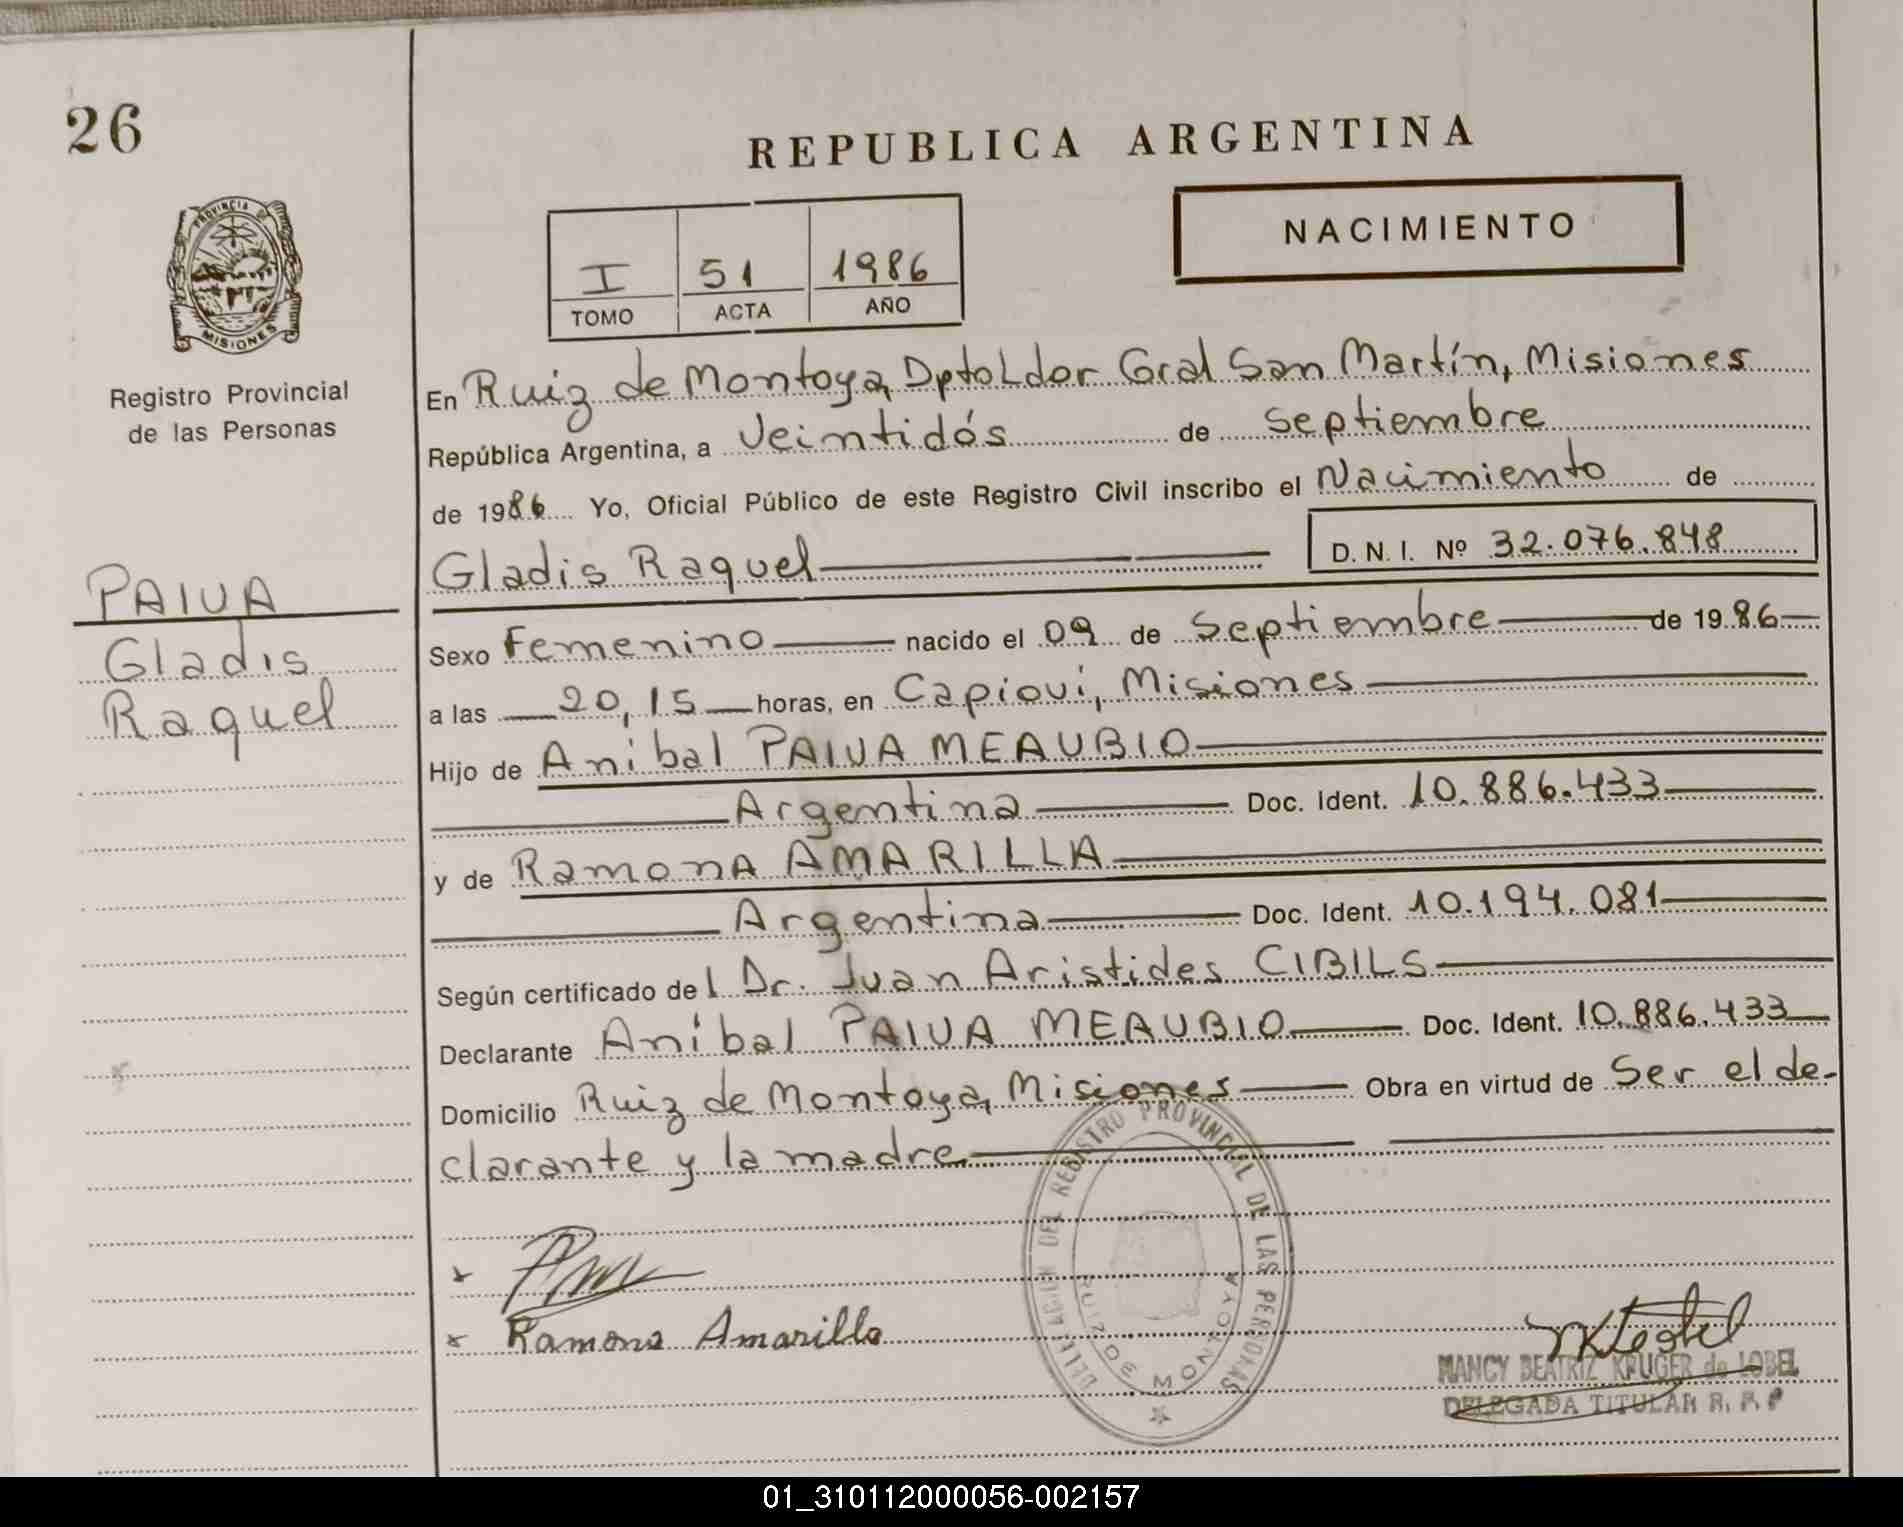 26
REPUBLICA ARGENTINA
NACIMIENTO
I 51 1986
TOMO ACTA AÑO
PROVINCIA DE
MISIONES
Registro Provincial
de las Personas
En Ruiz de Montoya, Dpto Ldor Gral San Martín, Misiones
República Argentina, a Veintidós de Septiembre
de 1986 Yo, Oficial Público de este Registro Civil inscribo el Nacimiento de
Gladis Raquel D. N. I. Nº 32.076.848
PAIVA
Gladis
Raquel
Sexo Femenino nacido el 09 de Septiembre de 1986
a las 20,15 horas, en Capioví, Misiones
Hijo de Anibal PAIVA MEAUBIO
Argentina Doc. Ident. 10.886.433
y de Ramona AMARILLA
Argentina Doc. Ident. 10.194.081
Según certificado del Dr. Juan Aristides CIBILS
Declarante Aníbal PAIVA MEAUBIO Doc. Ident. 10.886.433
Domicilio Ruiz de Montoya, Misiones Obra en virtud de Ser el de-
clarante y la madre
DELEGACION DEL REGISTRO PROVINCIAL DE LAS PERSONAS
RUIZ DE MONTOYA
Ramona Amarilla
NANCY BEATRIZ KRUGER de LOBEL
DELEGADA TITULAR R. P. P
01_310112000056-002157